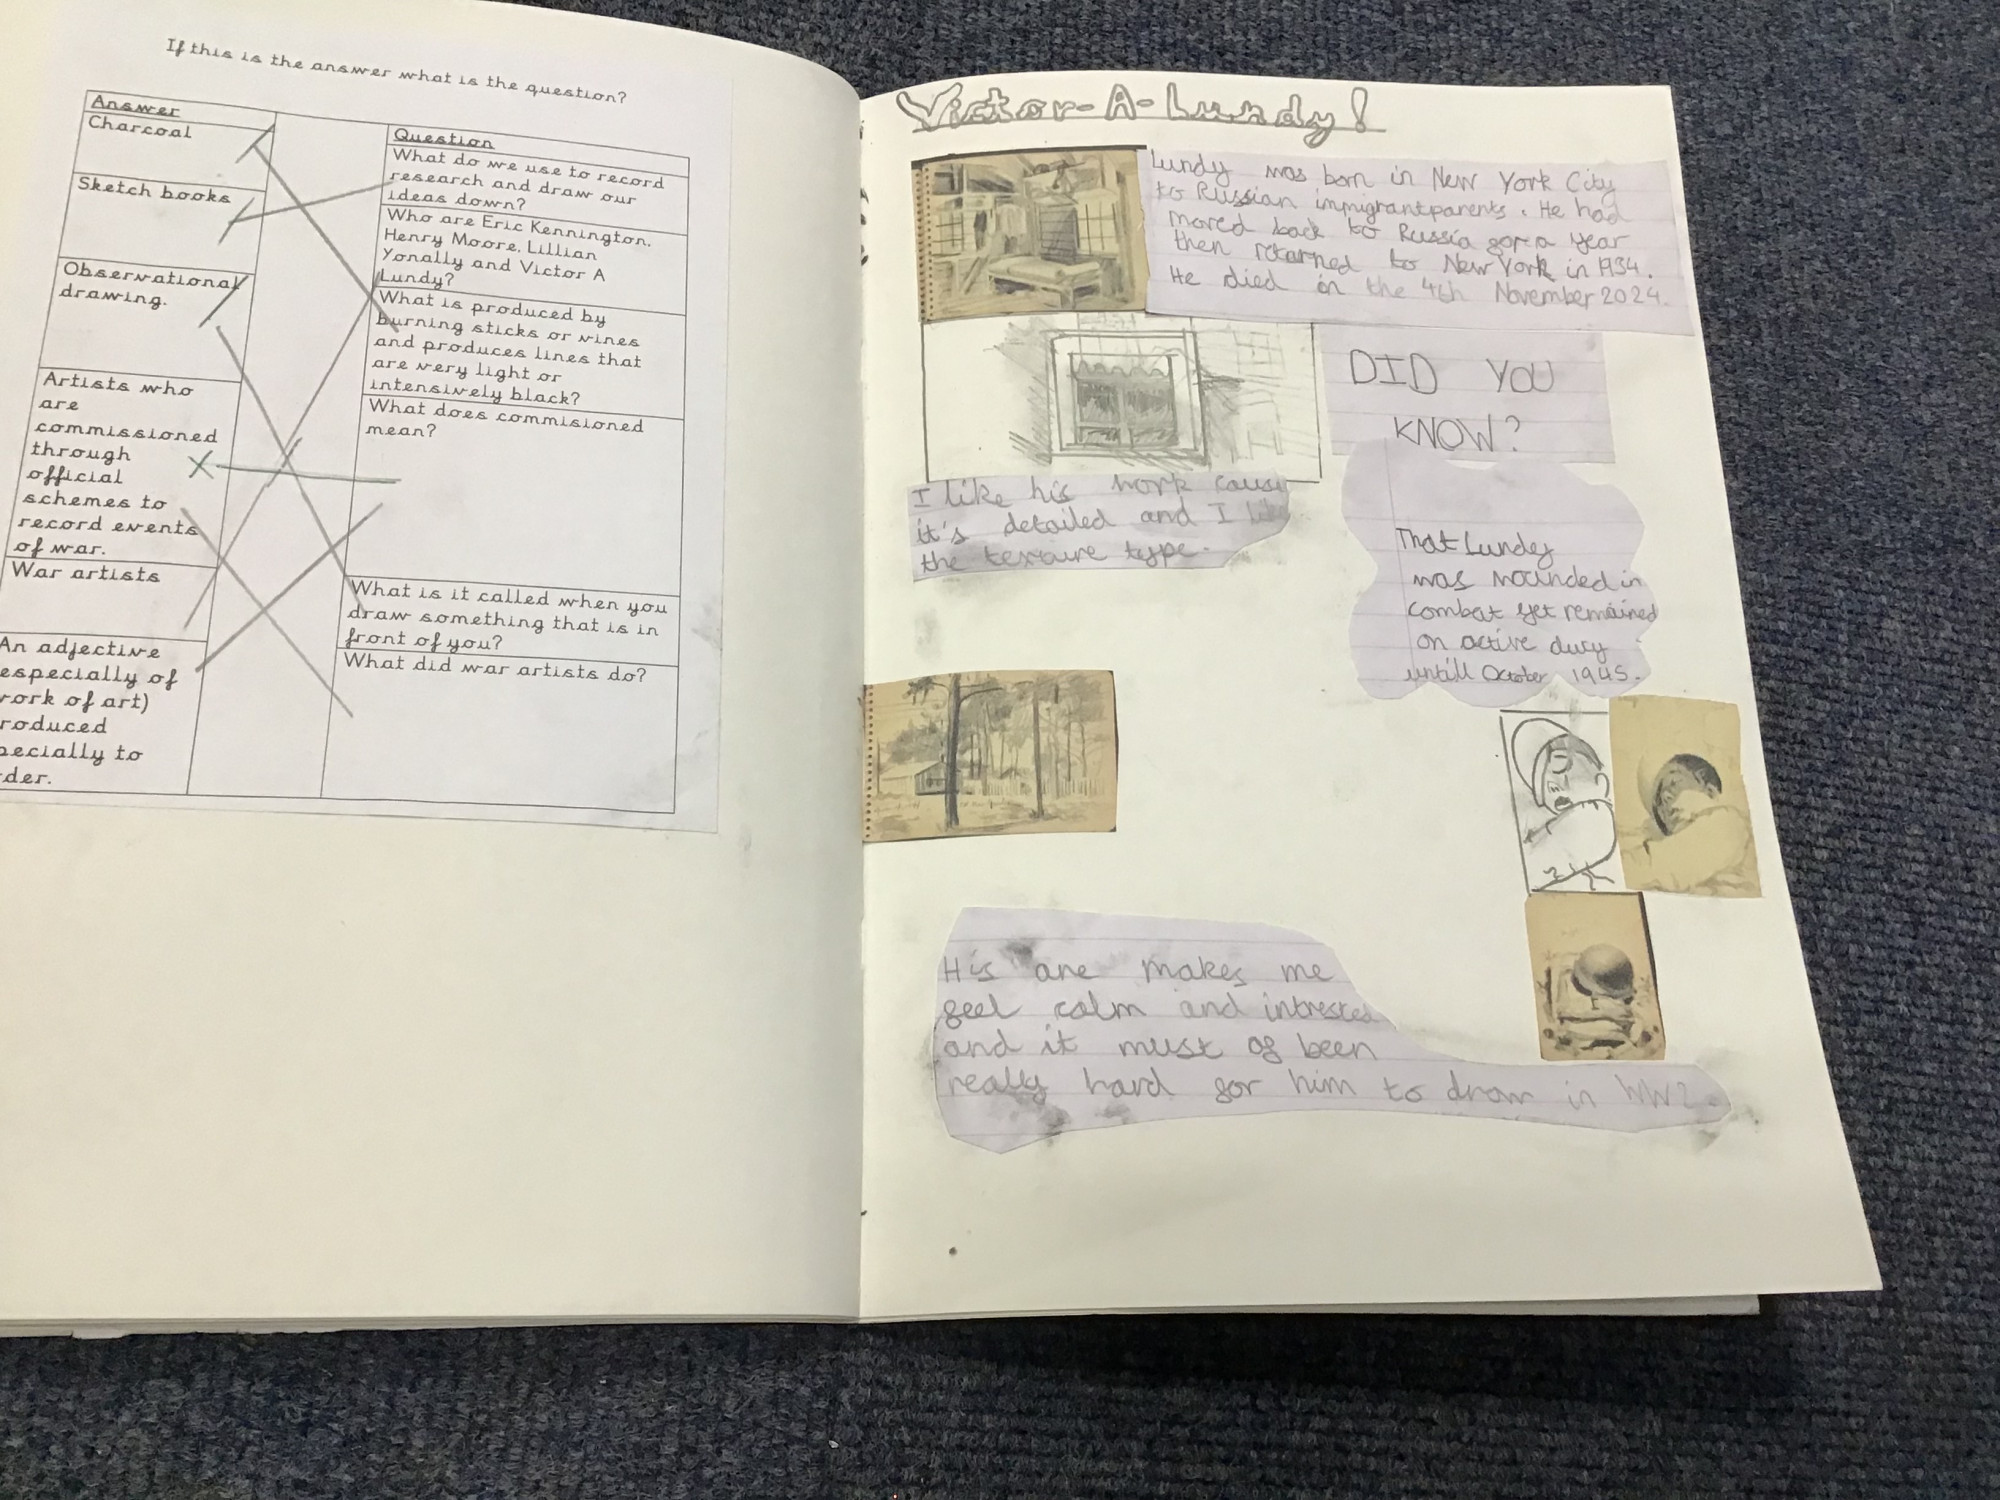 If this is the answer what is the question?
Answer
Charcoal
Sketch books
Observational
drawing.
Artists who
are
commissioned
through
official
schemes to
record events
of war.
War artists
An adjective
especially of
work of art)
roduced
pecially to
der.
Question
What do we use to record
research and draw our
ideas down?
Who are Eric Kennington,
Henry Moore, Lillian
Yonally and Victor A
Lundy?
What is produced by
burning sticks or vines
and produces lines that
are very light or
intensively black?
What does commisioned
mean?
What is it called when you
draw something that is in
front of you?
What did war artists do?
Victor-A-Lundy!
Lundy was born in New York City
to Russian immigrantparents. He had
moved back to Russia for a year
then retarned to New York in 1934.
He died on the 4th November 2024.
DID YOU
KNOW?
I like his work cause
it's detailed and I like
the texture type.
That Lundy
was wounded in
combat yet remained
on active duty
untill October 1945.
His art makes me
feel calm and intrested
and it must of been
really hard for him to draw in WW2.